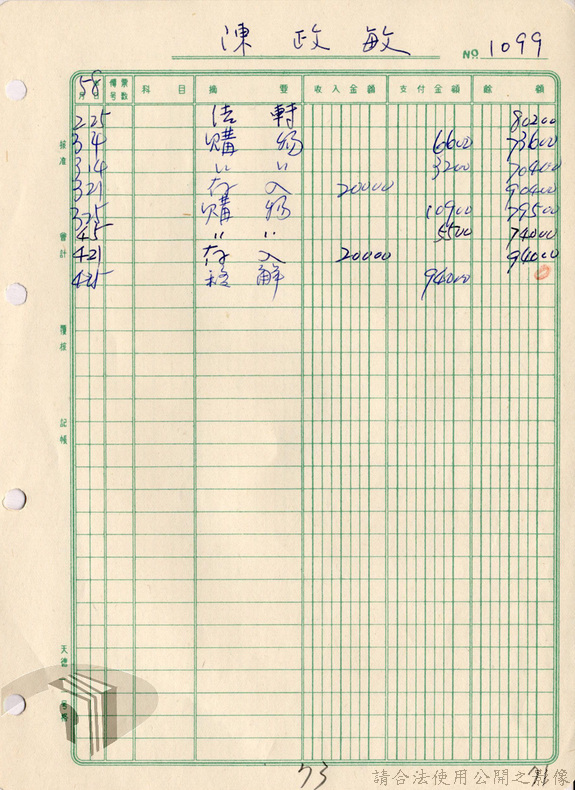 陳政敏
NO. 1099
58
月 日 傳票号数 科目 摘要 收入金額 支付金額 餘額
2 25 80200
3 4 購物 6600 73600
3 14 〃 〃 3200 70400
3 21 存入 20000 90400
3 25 購物 10900 79500
4 5 〃 〃 5500 74000
4 21 存入 20000 94000
4 25 移解 94000 0
核准
會計
覆核
記帳
天德
73
請合法使用公開之影像